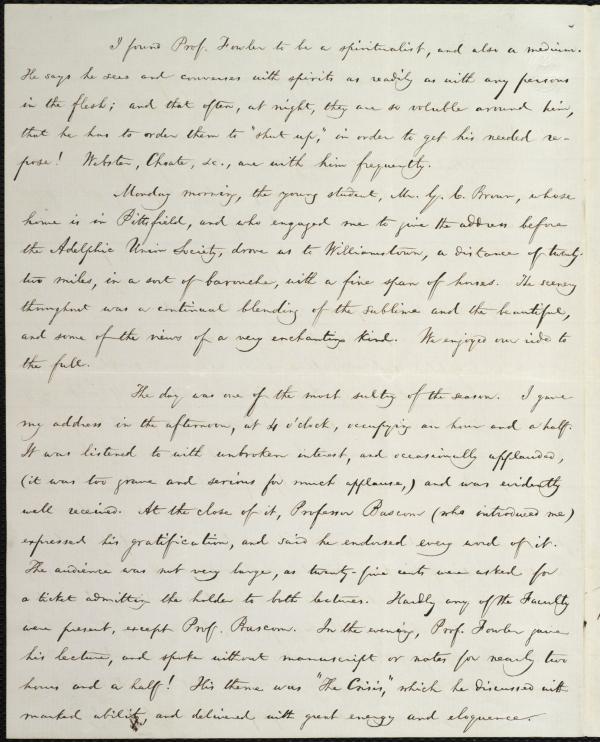 I found Prof. Fowler to be a spiritualist, and also a medium.
He says he sees and converses with spirits as readily as with any persons
in the flesh; and that often, at night, they are so voluble around him,
that he has to order them to "shut up," in order to get his needed re-
pose! Webster, Choate, &c., are with him frequently.
Monday morning, the young student, Mr. G. C. Brown, whose
home is in Pittsfield, and who engaged me to give the address before
the Adelphic Union Society, drove us to Williamstown, a distance of twenty-
two miles, in a sort of barouche, with a fine span of horses. The scenery
throughout was a continual blending of the sublime and the beautiful,
and some of the views of a very enchanting kind. We enjoyed our ride to
the full.
The day was one of the most sultry of the season. I gave
my address in the afternoon, at 4 o'clock, occupying an hour and a half.
It was listened to with unbroken interest, and occasionally applauded,
(it was too grave and serious for much applause,) and was evidently
well received. At the close of it, Professor Bascom (who introduced me)
expressed his gratification, and said he endorsed every word of it.
The audience was not very large, as twenty-five cents were asked for
a ticket admitting the holder to both lectures. Hardly any of the Faculty
were present, except Prof. Bascom. In the evening, Prof. Fowler gave
his lecture, and spoke without manuscript or notes for nearly two
hours and a half! His theme was "The Crisis," which he discussed with
marked ability, and delivered with great energy and eloquence.